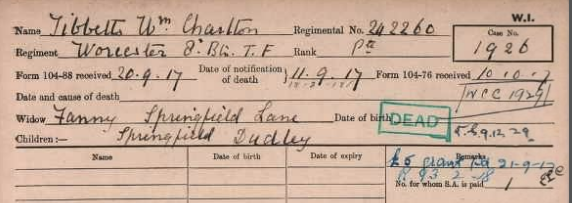 W.I.
Name Tibbetts Wm Charlton Regimental No. 242260 Case No.
Regiment Worcester 8' Bn. T.F Rank Pte 1926
Form 104-88 received 20.9.17 Date of notification of death 11.9.17 Form 104-76 received 10.10.7
Date and cause of death WCC 1927
Widow Fanny Springfield Lane Date of birth DEAD
Children:— Springfield Dudley
Name Date of birth Date of expiry Remarks
£5 grant Pd 21-9-17
No. for whom S.A. is paid 1